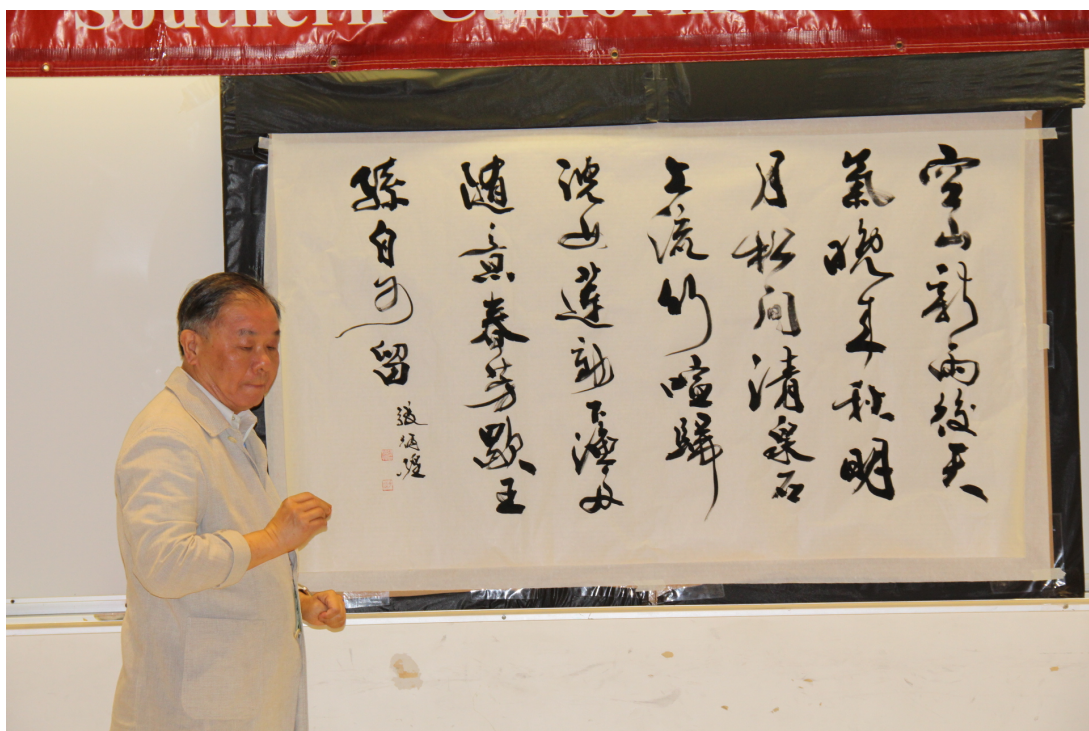 Southern California
空山新雨後天
氣晚来秋明
月松间清泉石
上流竹喧歸
浣女蓮動下漁舟
随意春芳歇王
孫自可留
張炳煌